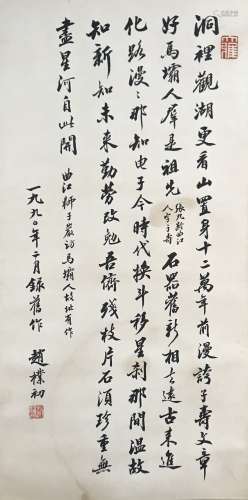 洞裡觀湖更看山置身十二萬年前漫誇子壽文章
好馬壩人群是祖先張九齡曲江人字子壽石器舊新相去遠古來進
化路漫漫那知电子今時代换斗移星刹那間溫故
知新知未来勤勞改勉吾儕殘枝片石須珍重無
盡星河自此開
曲江獅子巖訪馬壩人故址有作
一九九〇年二月録舊作
趙樸初